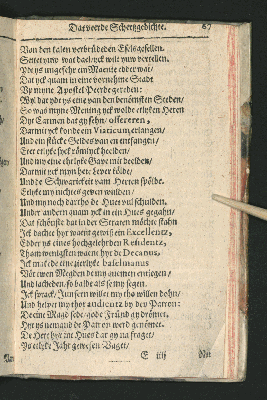 Dat veerde Schertzgedichte. 67
Van den falen verbrüdeden Eselsgesellen.
Settet yuw wat dael/ yck wilt yuw vertellen.
Ydt ys ungefehr ein Maente edder war/
Dat yck quam in eine vornehme Stadt
Up myne Apostel Perde gereden:
Wyl dat ydt ys eine van den benömsten Steden/
So was myne Mening yck wolde etlyken Heren
Dyt Carmen dat gy sehn/ offereren,
Darmit yck konde ein Viaticum erlangen/
Und ein stücke Geldes van en entfangen/
Eder etlyke syck römisck heelden/
Und my eine ehrlyke Gave mit deelden/
Darmit yck myn her Lever kölde/
Und de Schwarickeit vam Herten spölde.
Etlyke my nichtes geven wulden/
Und my noch dartho de Huet vul schulden.
Under andern quam yck in ein Hues gegahn/
Dat schönste dat in der Straten möchte stahn
Ick dachte hyr waent gewiß ein Excellentz,
Edder ys eines hochgelehrden Residentz,
Tham wenigsten waent hyr de Decanus,
Ick makede eine zierlyke baselmanus
Vör twen Megden de my quemen entjegen/
Und lacheden/ so balde als se my segen.
Ick sprack/ Junfern willet my tho willen dohn/
Und helpet my thor audientz by den Patron:
De eine Magd sede/ gode Fründ gy drömet,
Hyr ys nemand de Patron werd genömet.
De Here hyr im Hues dar gy na fraget/
Ys etlyke Jahr gewesen Vaget/
E iiij Nu